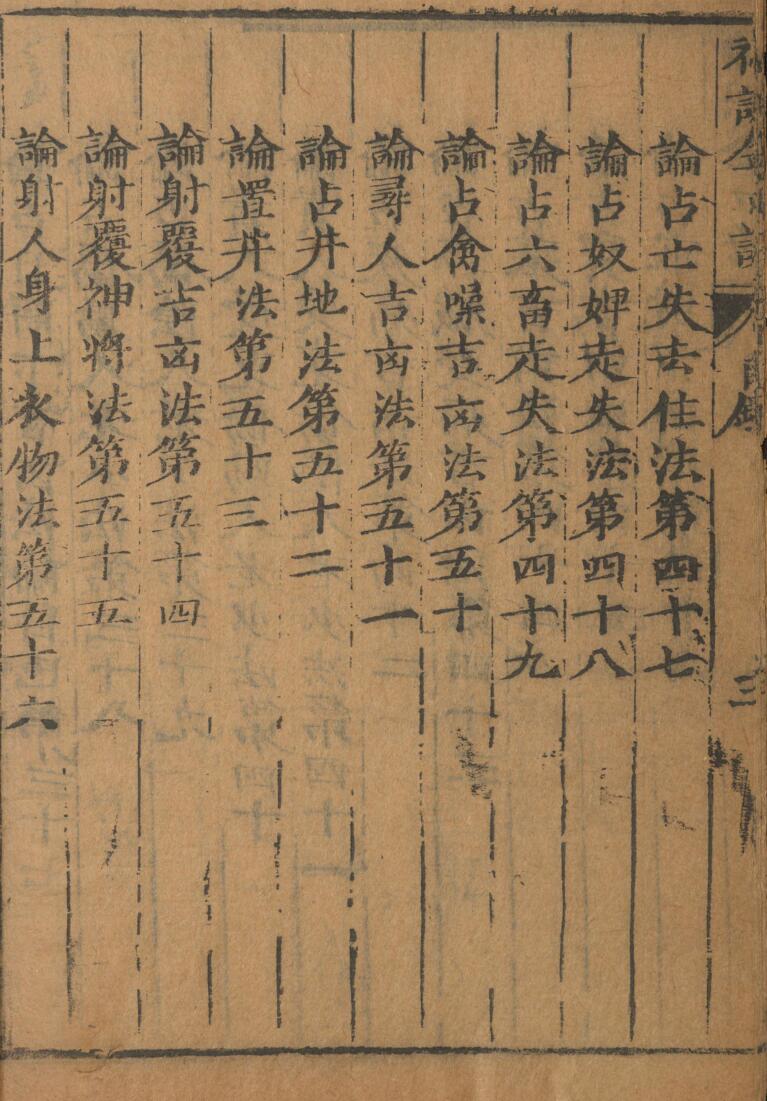 目錄
三
論占亡失去住法第四十七
論占奴婢走失法第四十八
論占六畜走失法第四十九
論占禽噪吉凶法第五十
論尋人吉凶法第五十一
論占井地法第五十二
論置井法第五十三
論射覆吉凶法第五十四
論射覆神將法第五十五
論射人身上衣物法第五十六